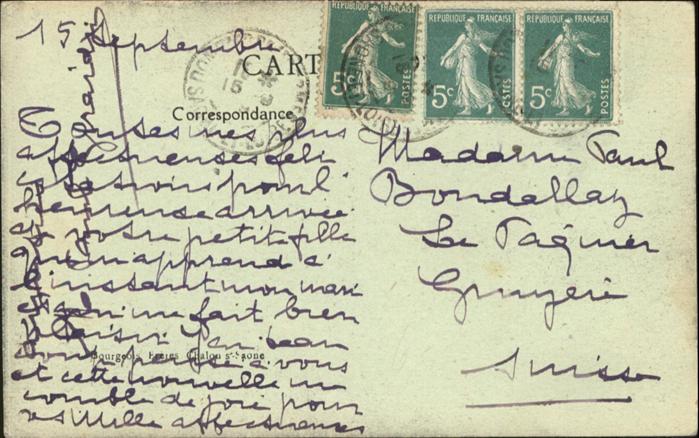 15 Septembre
CARTE
RÉPUBLIQUE FRANÇAISE
5c
POSTES
RÉPUBLIQUE FRANÇAISE
5c
POSTES
RÉPUBLIQUE FRANÇAISE
5c
POSTES
Correspondance
Toutes mes plus
affectueuses féli
citations pour l'
heureuse arrivée
de votre petite fille
qu'apprend à
l'instant mon mari
qui me fait bien
plaisir
pensé à vous
et cette nouvelle me
comble de joie pour
vs Mille affectueuses
Bourgeois Frères Chalon s/ Saone
Madame Paul
Bondallaz
Le Paquier
Gruyère
Suisse